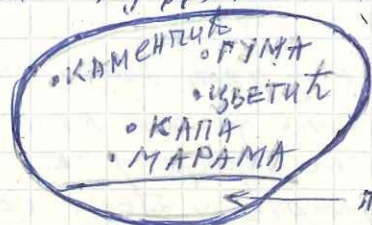 • КАМЕНЧИЋ
• ГУМА
• ЦВЕТИЋ
• КАПА
• МАРАМА